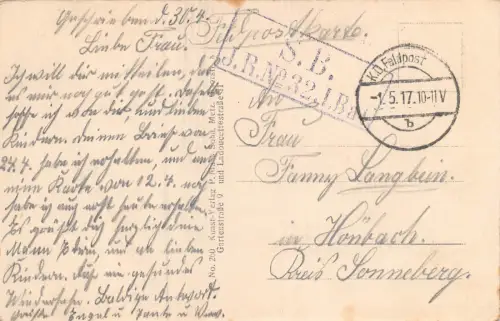 Geschrieben d. 30.4.
Feldpostkarte.
Liebe Frau.
Ich will dir mitteilen, daß
es mir noch gut geht. Dasselbe
hoffe ich von dir und lieben
Kindern. Deinen Brief vom
24.4. habe ich erhalten und auch
eine Karte vom 02.4.
habe ich auch erst heute erhalten.
Es grüßt dich herzlich dein
Mann Edern und an lieben
Kindern. Auf ein gesundes
Wiedersehn. Baldige Antwort.
Engel u Tante u
S. B.
J.R. No. 32, I. Ba
K.D. Feldpost
-1.5.17.10-11V
b
No. 260 Kunst-Verlag Metz,
Gartenstraße 9 und Ladoucettestraße
An
Frau
Fanny Langbein.
in Hönbach.
Kreis Sonneberg.